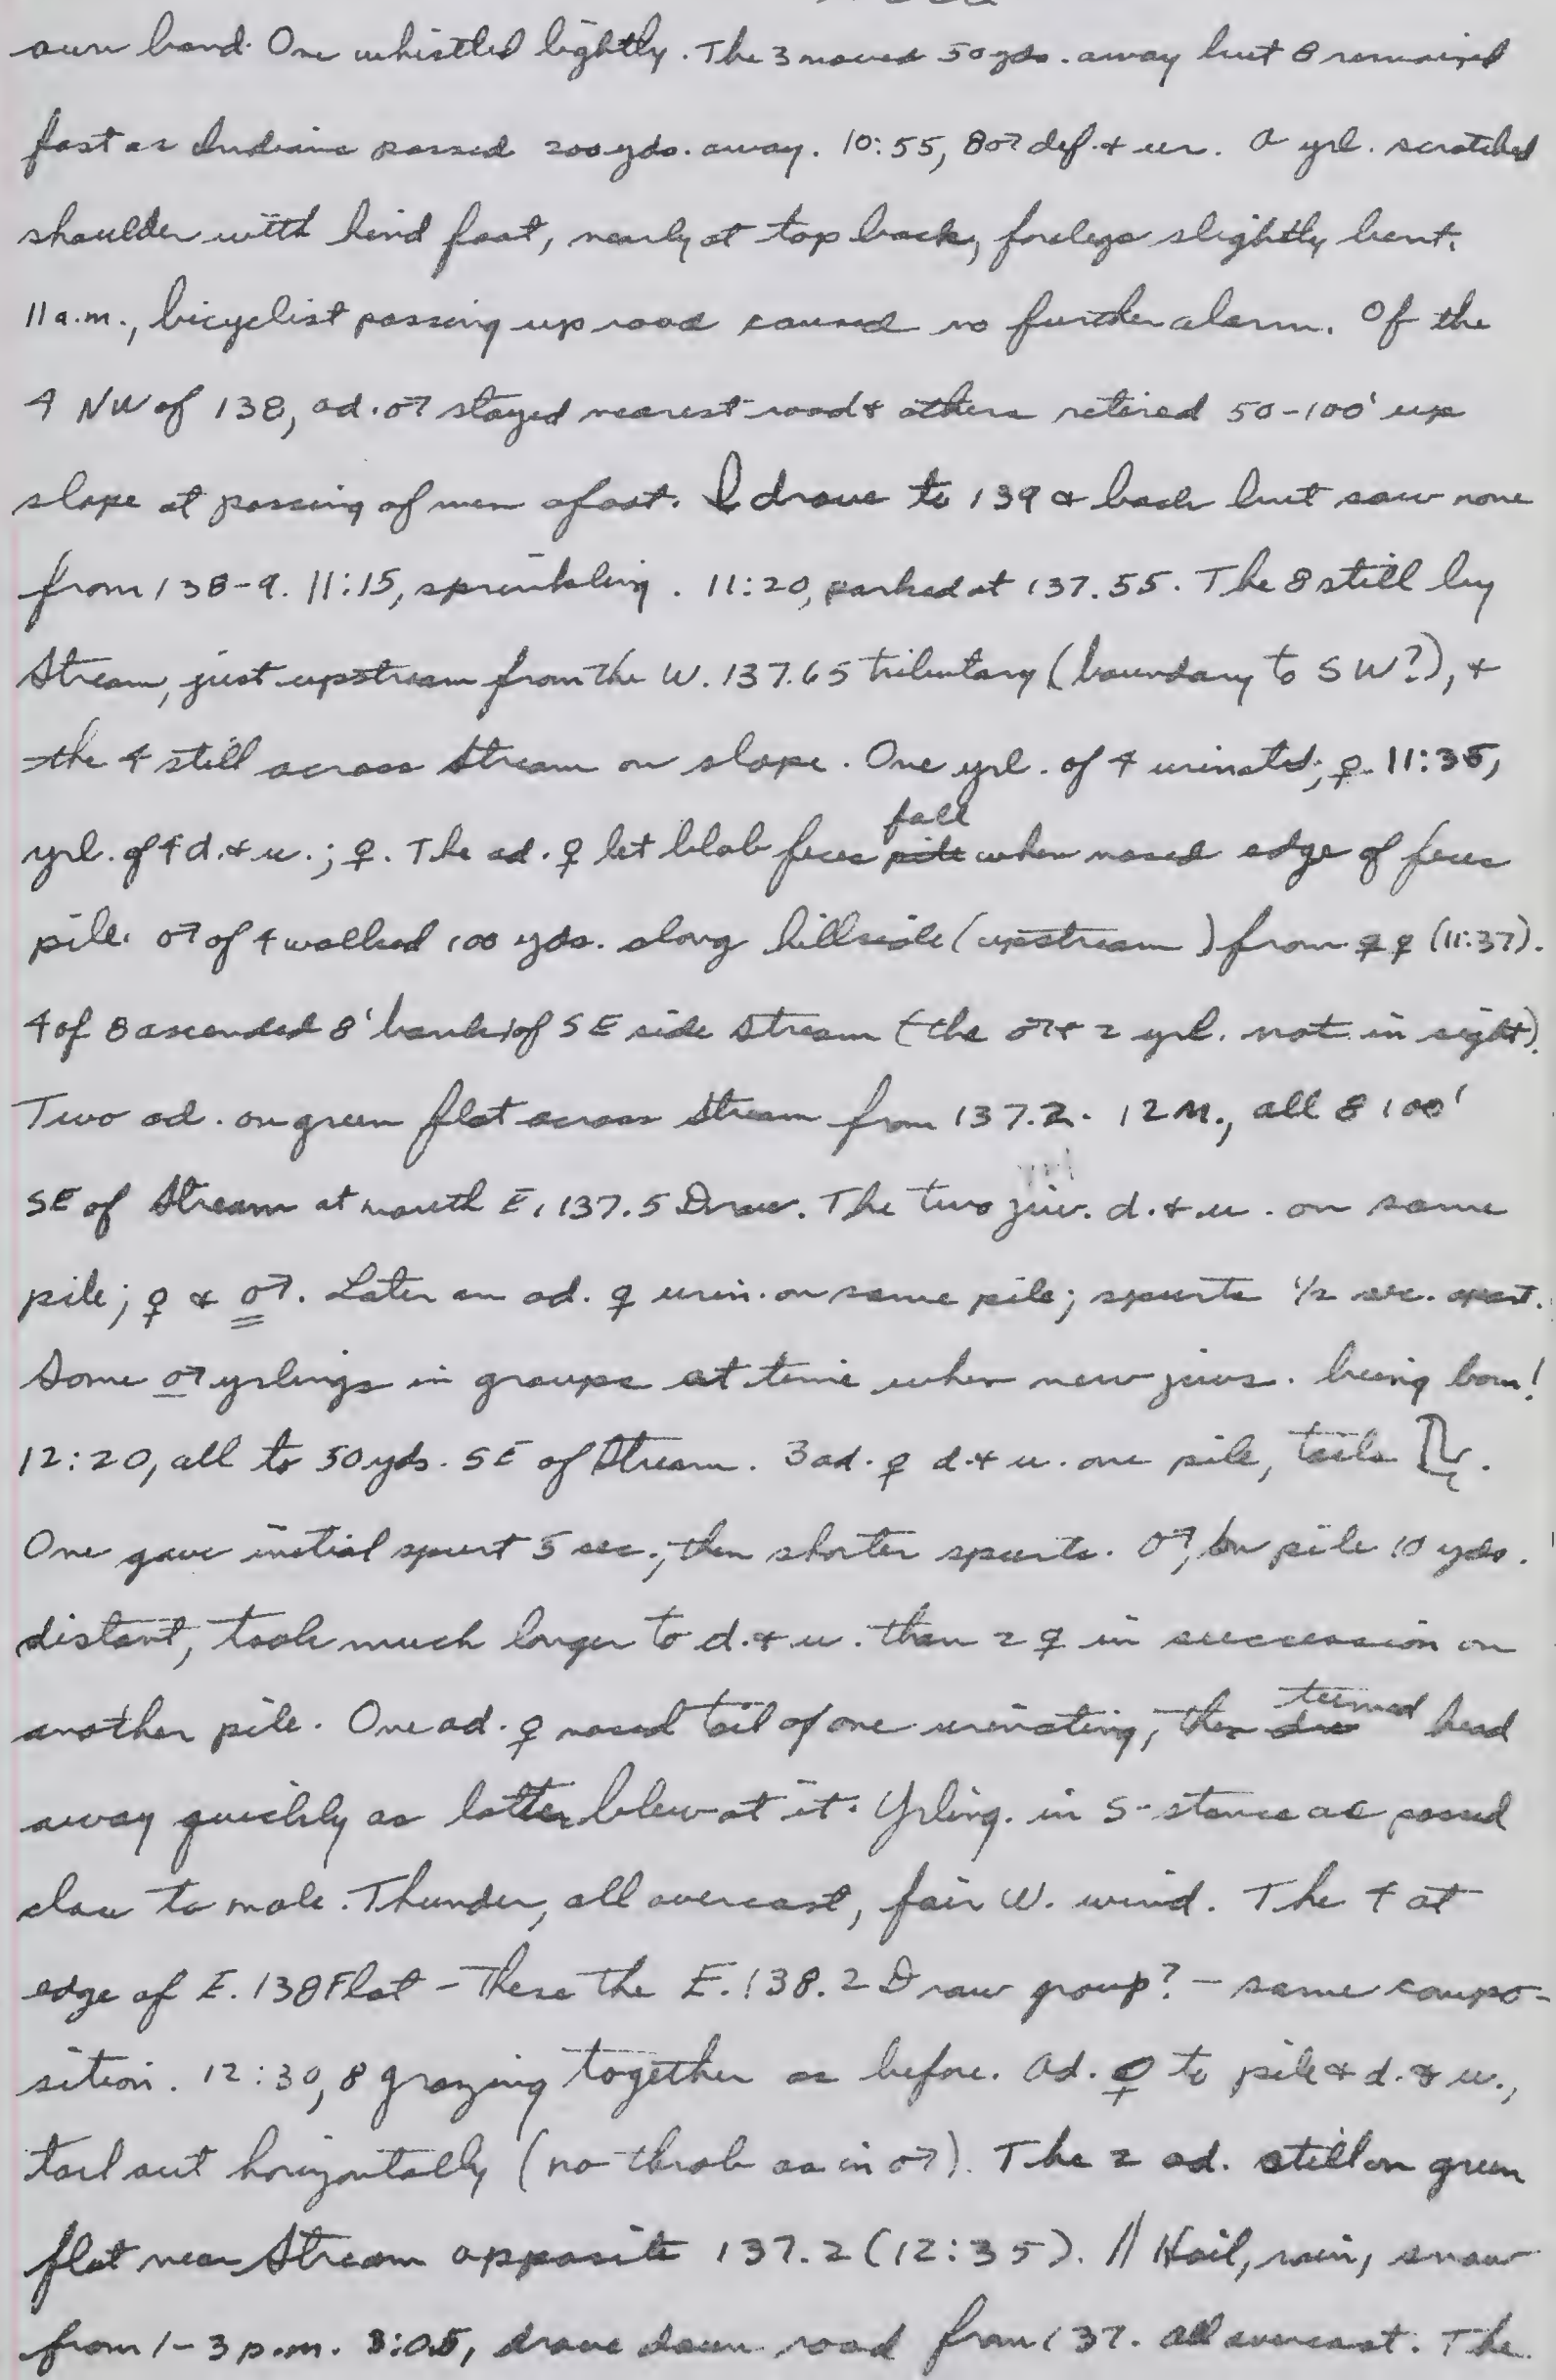 own band. One whistled lightly. The 3 moved 50 yds. away but 8 remained
fast as Indians passed 200 yds. away. 10:55, 8♂ def. & ur. A yrl. scratched
shoulder with hind foot, nearly at top back, forelegs slightly bent.
11 a.m., bicyclist passing up road caused no further alarm. Of the
4 NW of 138, ad. ♂ stayed nearest road & others retired 50-100' up
slope at passing of men afoot. I drove to 139 & back but saw none
from 138-9. 11:15, sprinkling. 11:20, parked at 137.55. The 8 still by
Stream, just upstream from the W. 137.65 tributary (boundary to SW?), &
the 4 still across Stream on slope. One yrl. of 4 urinated; ♀. 11:35,
yrl. of 4 d. & u.; ♀. The ad. ♀ let blob feces pile fall when nosed edge of feces
pile. ♂ of 4 walked 100 yds. along hillside (upstream) from ♀♀ (11:37).
4 of 8 ascended 8' bank of SE side Stream (the ♂ & 2 yrl. not in sight).
Two ad. on green flat across Stream from 137.2. 12 M., all 8 100'
SE of Stream at mouth E. 137.5 Draw. The two juv. d. & u. on same
pile; ♀ & ♂. Later an ad. ♀ urin. on same pile; spurts 1/2 sec. apart.
Some ♂ yrlings in groups at time when new juvs. being born!
12:20, all to 50 yds. SE of Stream. 3 ad. ♀ d. & u. one pile, tails.
One gave initial spurt 5 sec., then shorter spurts. ♂, on pile 10 yds.
distant, took much longer to d. & u. than 2 ♀ in succession on
another pile. One ad. ♀ nosed tail of one urinating, then turned head
away quickly as latter blew at it. Yrling. in S-stance as passed
close to male. Thunder, all overcast, fair W. wind. The 4 at
edge of E. 138 Flat - These the E. 138.2 Draw group? - same compo-
sition. 12:30, 8 grazing together as before. Ad. ♀ to pile & d. & u.,
tail out horizontally (no throb as in ♂). The 2 ad. still on green
flat near Stream opposite 137.2 (12:35). // Hail, rain, snow
from 1-3 p.m. 3:05, drove down road from 137. All overcast. The